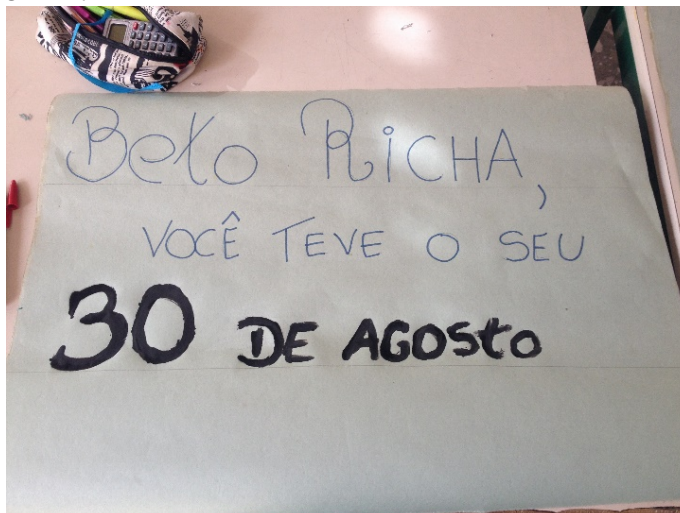 Beto RiCHA,
VOCÊ TEVE O SEU
30 DE AGOSto